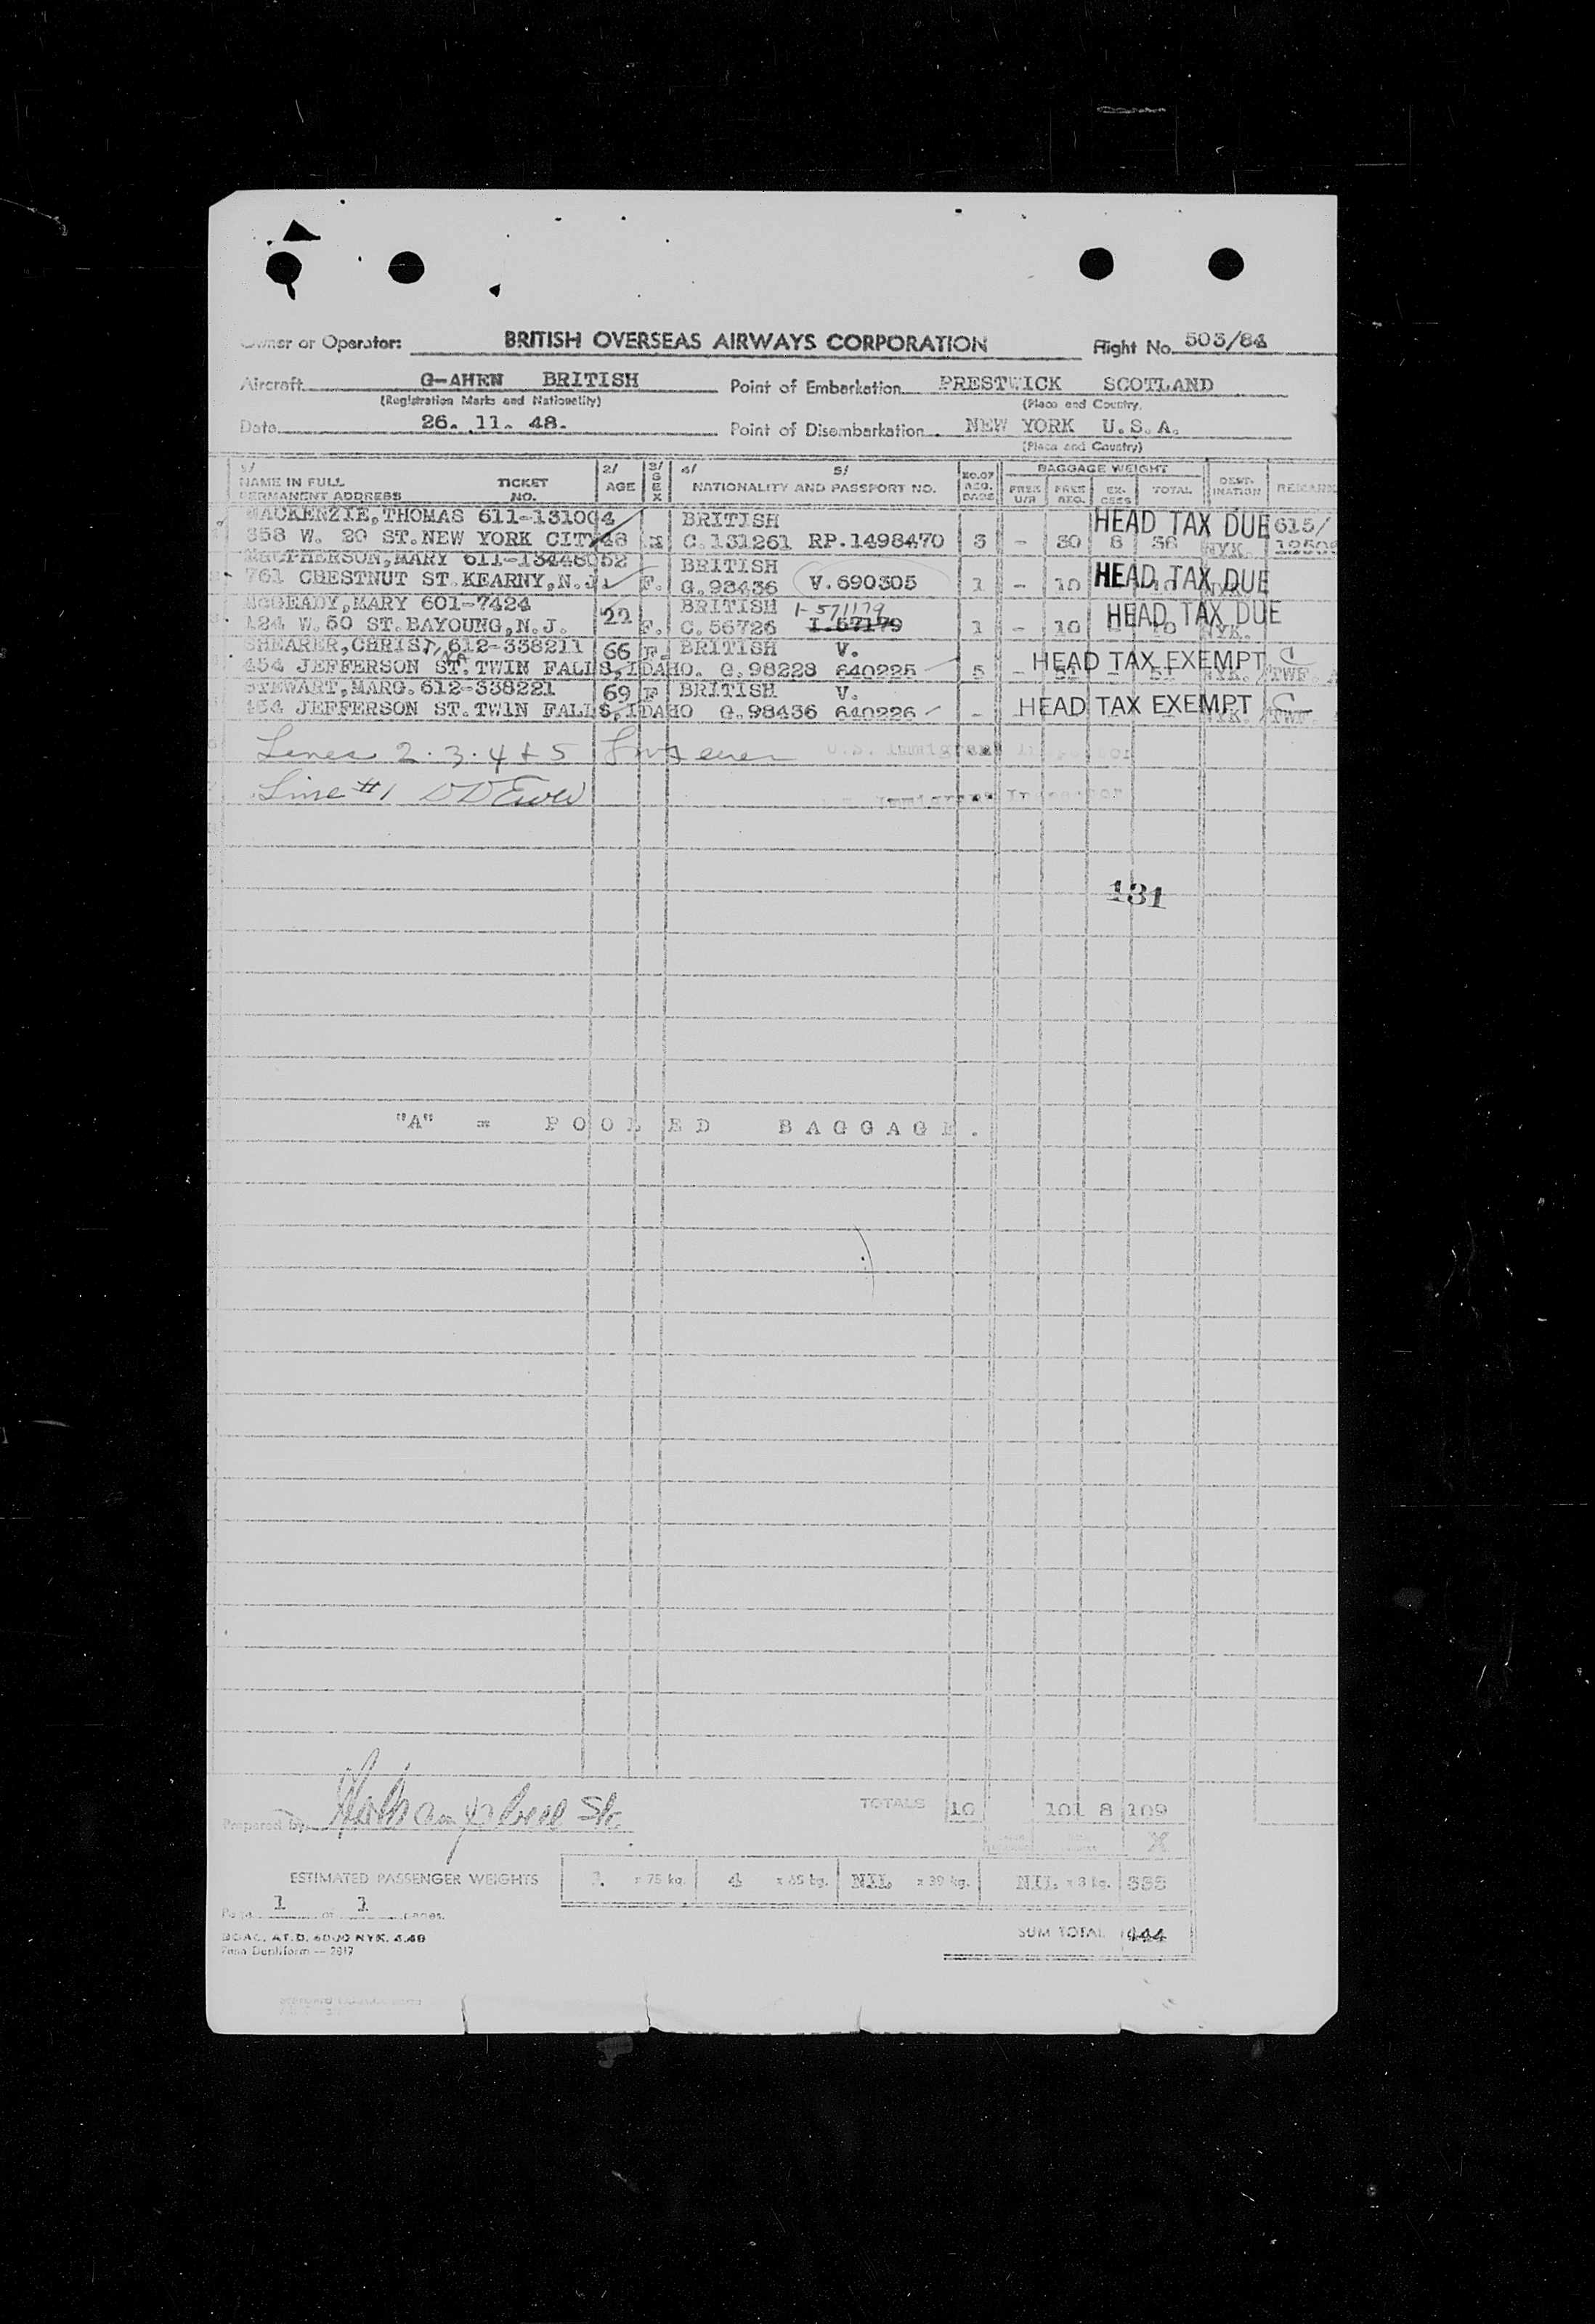 Owner or Operator: BRITISH OVERSEAS AIRWAYS CORPORATION Flight No. 503/84
Aircraft G-AHEN BRITISH Point of Embarkation PRESTWICK SCOTLAND
(Registration Marks and Nationality) (Place and Country)
Date 26. 11. 48. Point of Disembarkation NEW YORK U.S.A.
(Place and Country)
1/ 2/ 3/ 4/ 5/ BAGGAGE WEIGHT
NAME IN FULL TICKET AGE SEX NATIONALITY AND PASSPORT NO. NO. OF REG. BAGS FREE U/R FREE REG. EX-CESS TOTAL DEST-INATION REMARKS
PERMANENT ADDRESS NO.
MACKENZIE, THOMAS 611-131004 BRITISH HEAD TAX DUE 615/
358 W. 20 ST. NEW YORK CITY 48 C.131261 RP.1498470 3 - 30 8 38 NYK.
MACPHERSON, MARY 611-134480 52 BRITISH
761 CHESTNUT ST. KEARNY, N.J. F. G.98436 V.690305 1 - 10 HEAD TAX DUE
McGEADY, MARY 601-7424 22 BRITISH 1-571179
424 W. 50 ST. BAYOUNG, N.J. F. C.56726 I.57179 1 - 10 HEAD TAX DUE NYK.
SHEARER, CHRISTINA 612-338211 66 F. BRITISH V.
454 JEFFERSON ST. TWIN FALLS, IDAHO. G.98228 640225 5 - 51 - 51 HEAD TAX EXEMPT C NYK. /TWF. A
STEWART, MARG. 612-338221 69 F BRITISH V.
454 JEFFERSON ST. TWIN FALLS, IDAHO G.98436 640226 - HEAD TAX EXEMPT C NYK. /TWF.
Lines 2.3.4 + 5 U.S. Immigrant Inspector
Line #1 Immigrant Inspector
131
"A" = POOLED BAGGAGE.
Prepared by
TOTALS 10 101 8 109
ESTIMATED PASSENGER WEIGHTS 1 x 75 kg. 4 x 65 kg. NIL. x 39 kg. NIL. x 8 kg. 335
Page 1 of 1 pages.
SUM TOTAL 444
BOAC. AT.D. 6000 NYK. 4.48